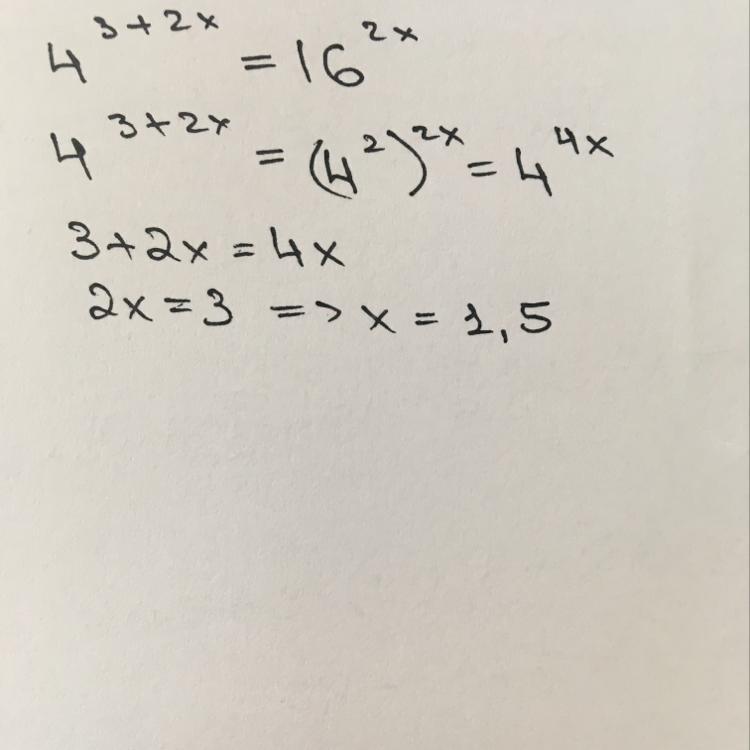 4^{3+2x} = 16^{2x}
4^{3+2x} = (4^2)^{2x} = 4^{4x}
3+2x = 4x
2x = 3 => x = 1,5